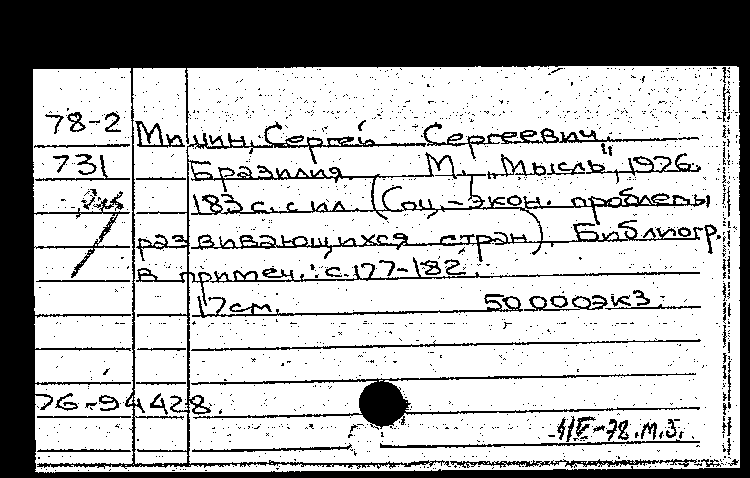 78-2 Мишин, Сергей Сергеевич.
731 Бразилия. М., „Мысль", 1976.
183 с. с ил. (Соц.-экон. проблемы
развивающихся стран). Библиогр.
в примеч.: с. 177-182.
17 см. 50 000 экз.
76-94428.
78. М.З.